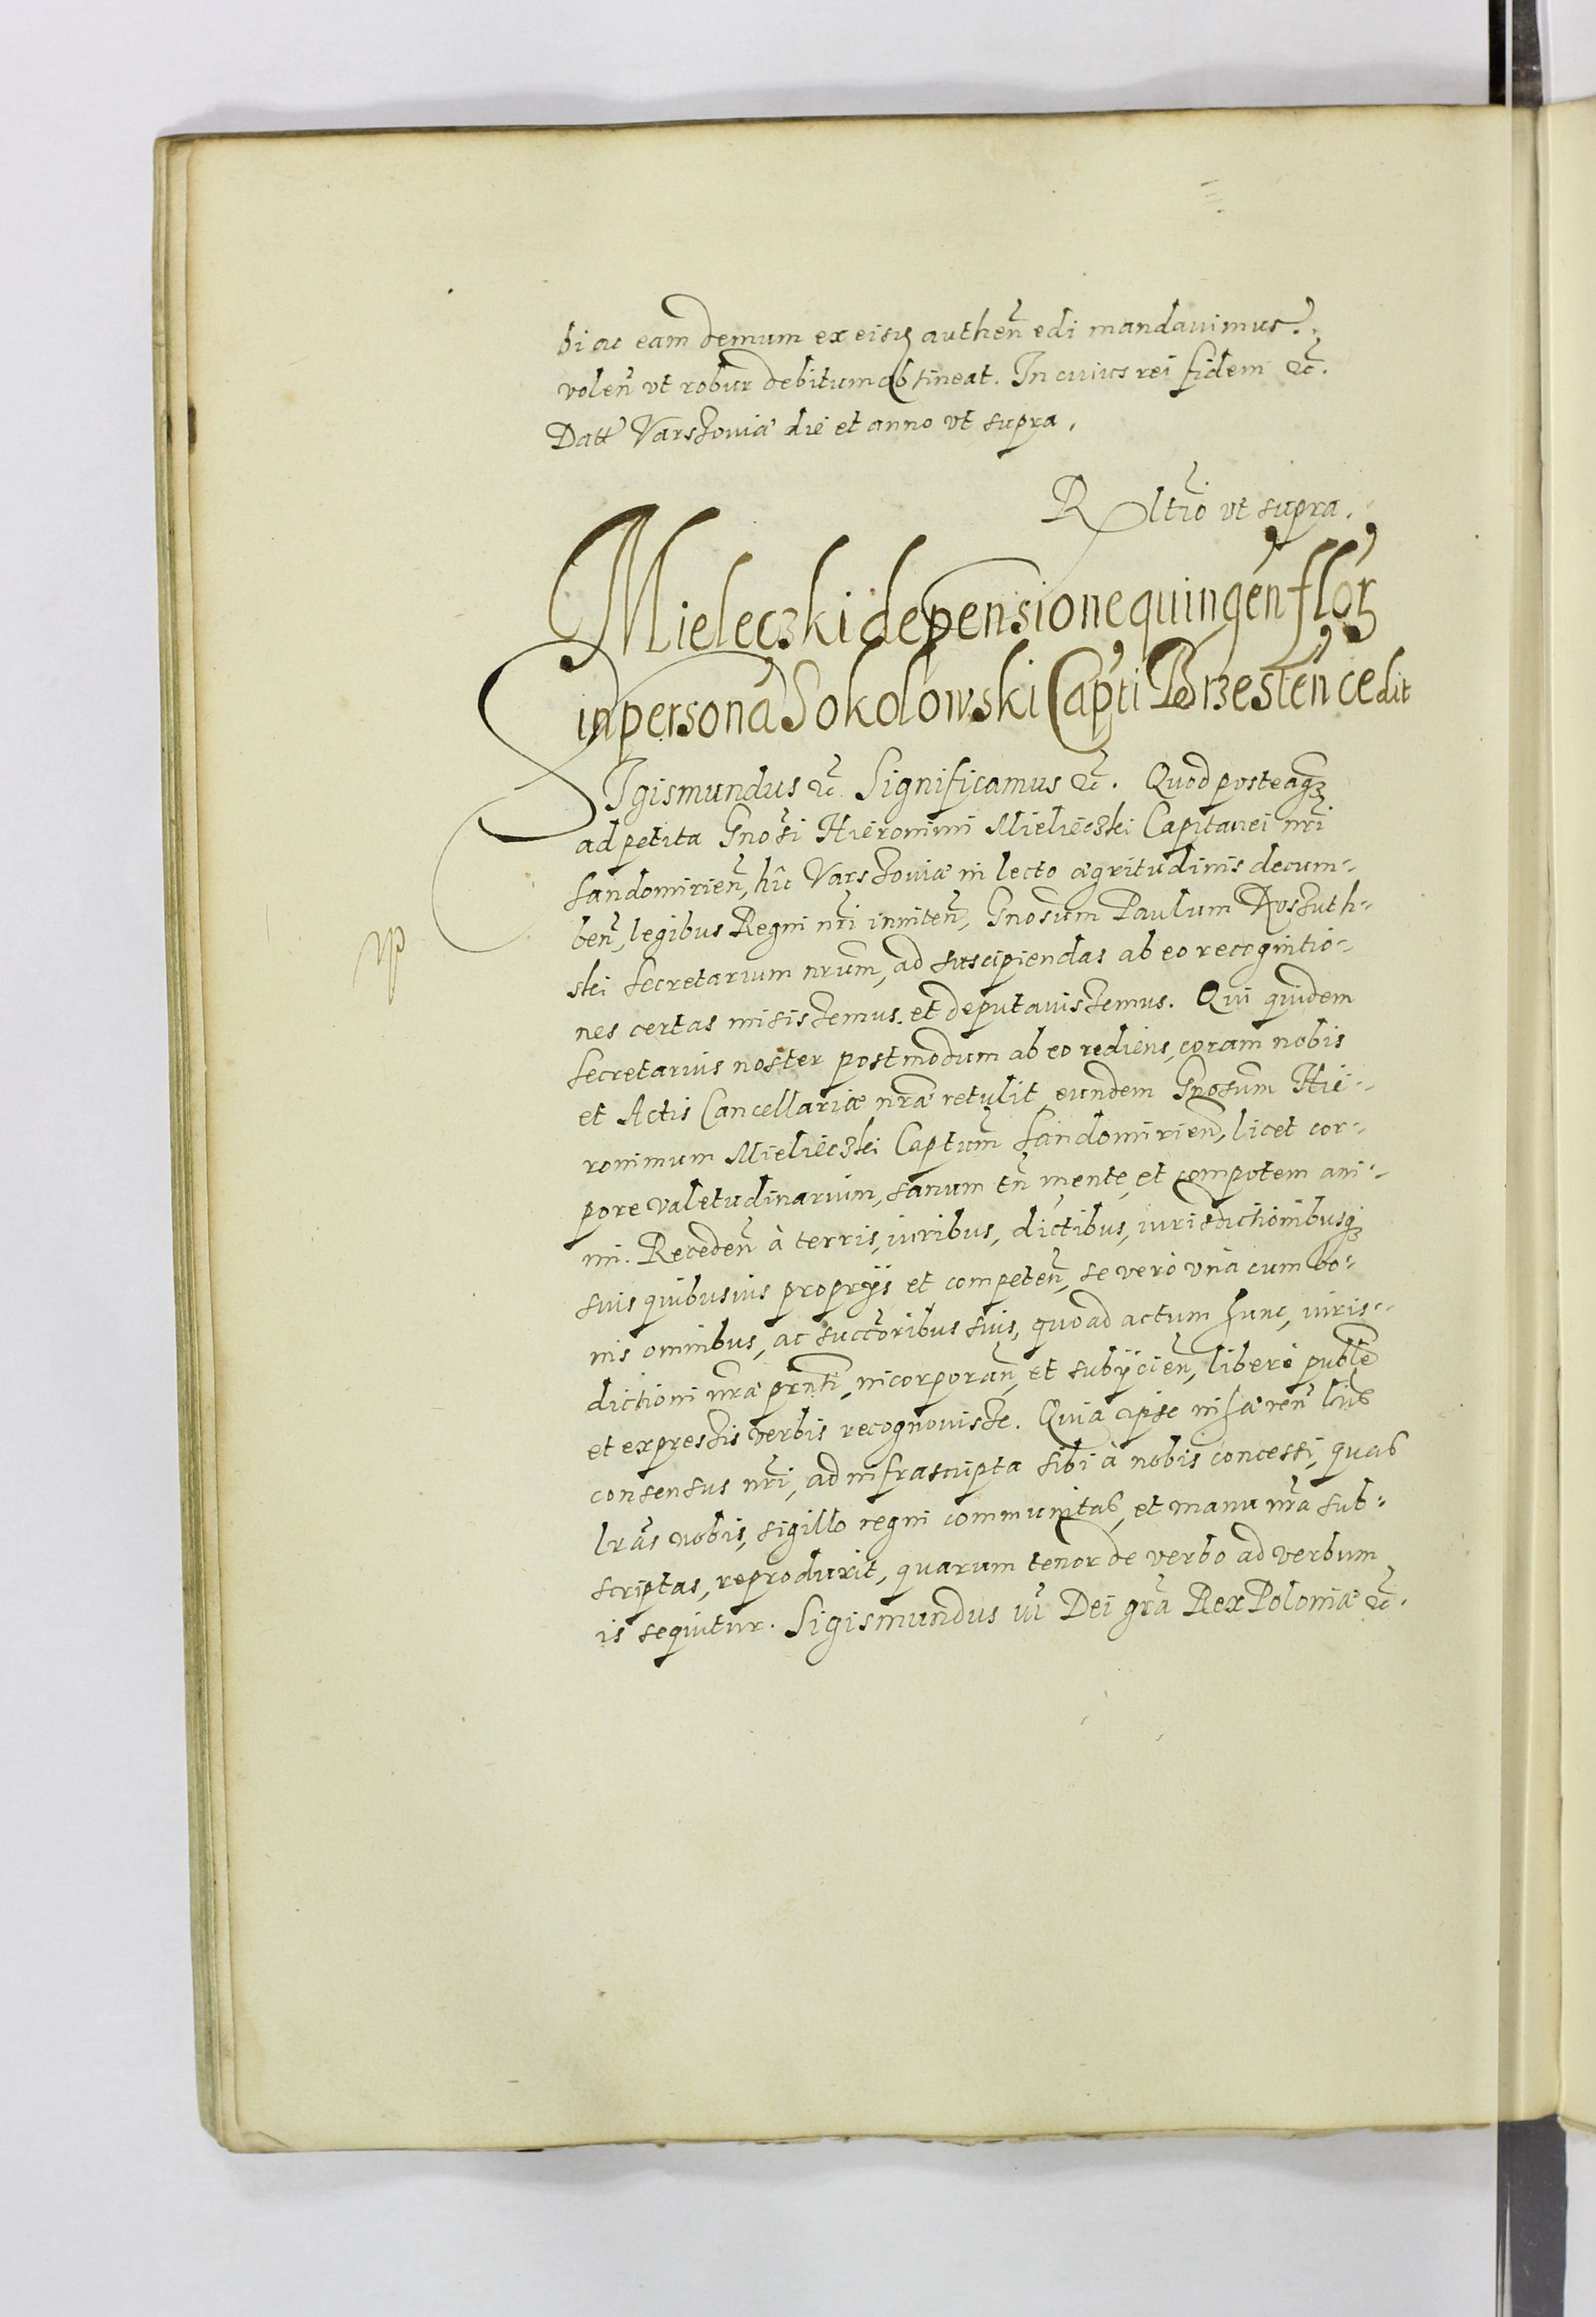 bi ac eam demum ex eisd authen̄ edi mandavimus.
volen̄ vt robur debitum obtineat. In cuius rei fidem &c̄.
Datt Varssoviæ die et anno vt supra.
Rltīo vt supra.
Mieleczki de pensione quingēn flor
in persona Sokolowski Capti Brzesten̄ cedit
SIgismundus &c̄ Significamus &c̄. Quod posteaqz
ad petita Gnosi Hieronimi Mielieczki Capitanei nr̄i
Sandomirien̄, hîc Varssoviæ in lecto ægritudinis decum-
ben̄, legibus Regni nr̄i inniten̄, Gnosum Paulum Kossuth-
ski Secretarium nrūm, ad suscipiendas ab eo recognitio-
nes certas misissemus et deputavissemus. Qui quidem
Secretarius noster postmodum ab eo rediens, coram nobis
et Actis Cancellariæ nr̄æ retulit, eundem Gnosum Hie-
ronimum Mielieczki Captum̄ Sandomirien̄, licet cor-
pore valetudinarium, sanum tn̄ mente, et compotem ani-
mi. Receden̄ à terris, iuribus, dictibus, iurisdictionibusqz
suis quibusvis proprijs et competen̄, se vero vnà cum bo-
nis omnibus, ac succōribus suis, quo ad actum hunc, iuris-
dictioni nr̄æ prn̄ti, incorporan̄, et subijcien̄, liberè publē
et expressis verbis recognovisse. Quia ipse
consensus nr̄i, ad infrascripta sibi à nobis concessi, quas
lrās nobis, sigillo regni communitas, et manu nr̄a sub-
scriptas, reproduxit, quarum tenor de verbo ad verbum
is sequitur. Sigismundus Dei grā Rex Poloniæ &c̄.